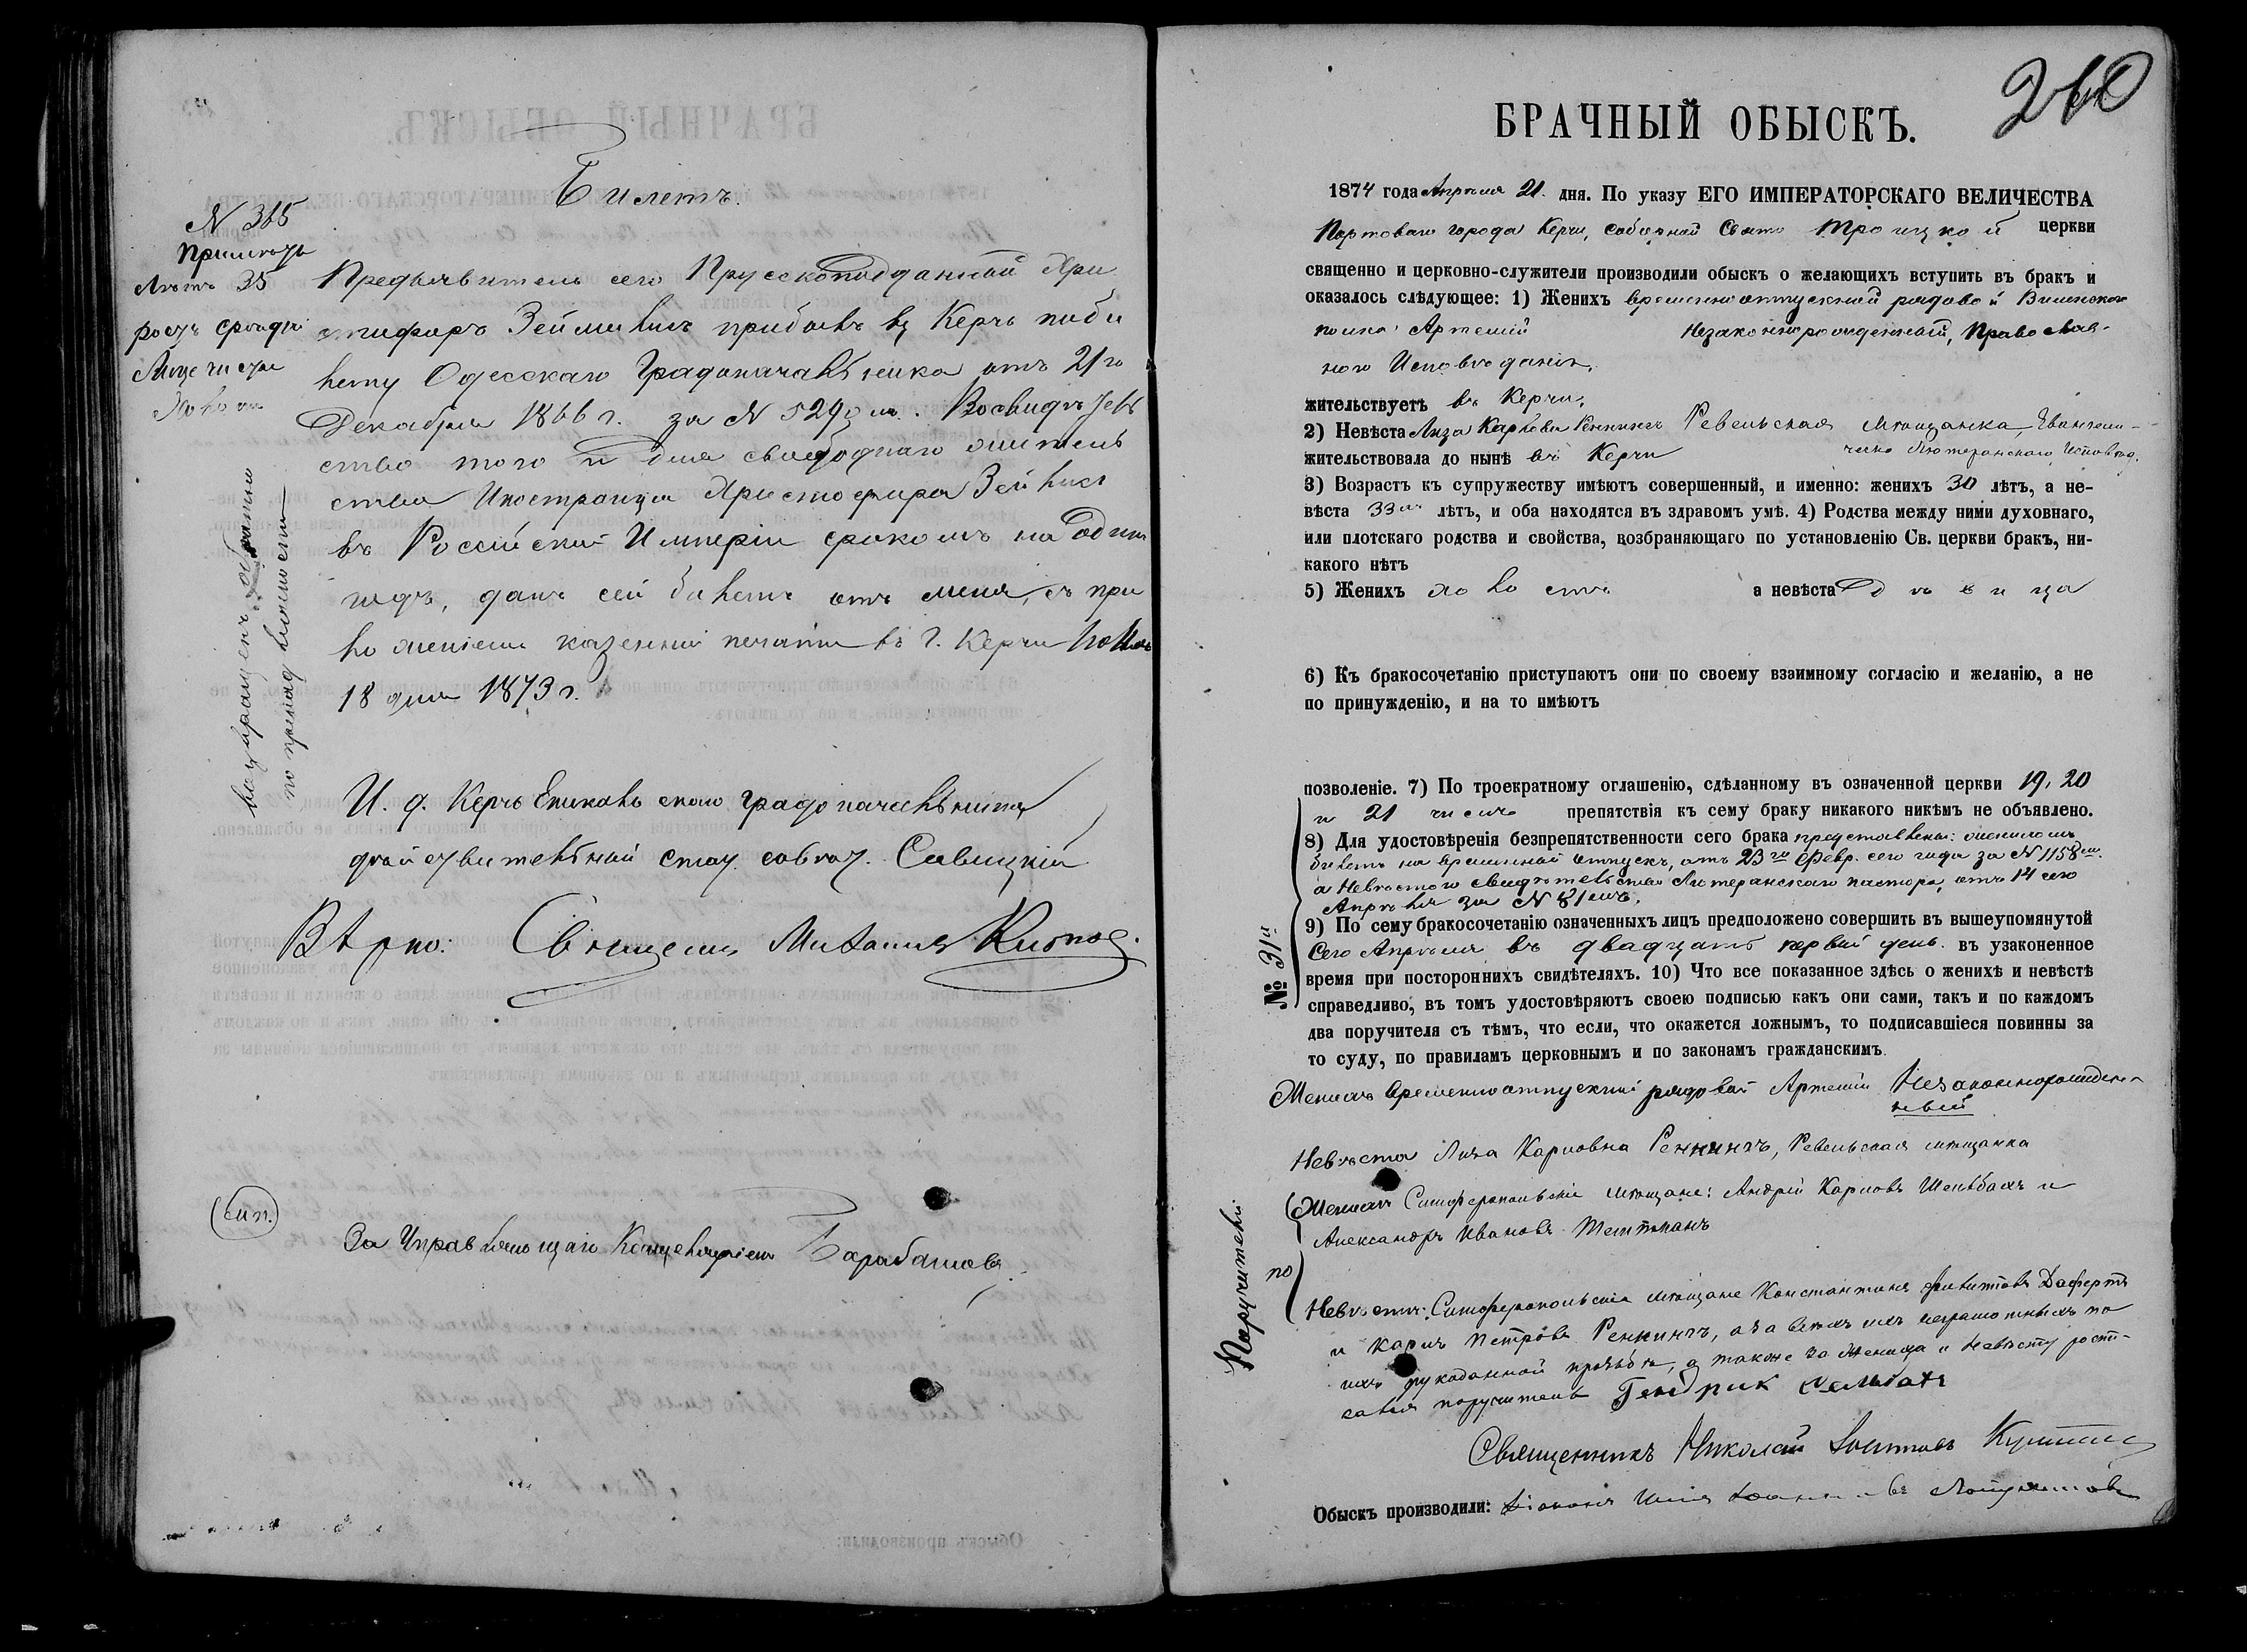 Билетъ.
N 315
Примѣты
Лѣтъ 35
ростъ средній
Лице чистое
Предъявитель сего Прусскоподданный Хри
стифоръ Зей прибывъ въ Керчь по би
лету Одесскаго Градоначальника отъ 21го
Декабря 1866 г. за N 5290 м. Восвидѣтель
ство того и для свободнаго жительс
ства Иностранца Христофора Зей
въ Россійской Имперіи срокомъ на Одинъ
годъ, данъ сей билетъ отъ меня, съ при
ложеніемъ казенной печати въ Г. Керчи
18 дня 1873 г.
возвращенъ обратно
по принадлежности
И. д. Керчь Еникольскаго градоначальника
дѣйствительный стат. совѣт. Савицкій
Вѣрно: Священ.
(м.п.)
За Управляющаго Канцеляріею Барабашовъ
260
БРАЧНЫЙ ОБЫСКЪ.
1874 года Апрѣля 21. дня. По указу ЕГО ИМПЕРАТОРСКАГО ВЕЛИЧЕСТВА
Портоваго города Керчи, соборной Свято Троицкой церкви
священно и церковно-служители производили обыскъ о желающихъ вступить въ бракъ и
оказалось слѣдующее: 1) Женихъ временноотпускной рядовой Виленскаго
полка Артемій Незаконнорожденный, Православ-
наго Исповѣданія,
жительствуетъ въ Керчи,
2) Невѣста Лиза Карлова Реннингъ Ревельская Мѣщанка, Евангели-
ческо Лютеранскаго Исповѣд.
жительствовала до нынѣ въ Керчи
3) Возрастъ къ супружеству имѣютъ совершенный, и именно: женихъ 30 лѣтъ, а не-
вѣста 33 лѣтъ, и оба находятся въ здравомъ умѣ. 4) Родства между ними духовнаго,
или плотскаго родства и свойства, возбраняющаго по установленію Св. церкви бракъ, ни-
какого нѣтъ
5) Женихъ холостъ а невѣста дѣвица
6) Къ бракосочетанію приступаютъ они по своему взаимному согласію и желанію, а не
по принужденію, и на то имѣютъ
позволеніе. 7) По троекратному оглашенію, сдѣланному въ означенной церкви 19, 20
и 21 чиселъ препятствія къ сему браку никакого никѣмъ не объявлено.
8) Для удостовѣренія безпрепятственности сего брака представлены: женихомъ
билетъ на временный отпускъ, отъ 23го Февр. сего года за N 1158м.
а Невѣстою свидѣтельство Лютеранскаго пастора, отъ 14 сего
Апрѣля за N 81мъ.
9) По сему бракосочетанію означенныхъ лицъ предположено совершить въ вышеупомянутой
Сего Апрѣля въ двадцать первый день. въ узаконенное
время при постороннихъ свидѣтеляхъ. 10) Что все показанное здѣсь о женихѣ и невѣстѣ
справедливо, въ томъ удостовѣряютъ своею подписью какъ они сами, такъ и по каждомъ
два поручителя съ тѣмъ, что если, что окажется ложнымъ, то подписавшіеся повинны за
то суду, по правиламъ церковнымъ и по законамъ гражданскимъ
№ 31й
Женихъ временноотпускной рядовой Артемій Незаконнорожден-
ный
Невѣста Лиза Карловна Реннингъ, Ревельская мѣщанка
Поручители
по
Женихѣ Симферопольскіе мѣщане: Андрей Карловъ Шенбахъ и
Александръ Ивановъ
Невѣстѣ: Симферопольскіе мѣщане Константинъ Филиповъ Дафертъ
и Карлъ Петровъ Реннингъ, а за всѣхъ ихъ неграмотныхъ по
ихъ рукоданной прозьбѣ, а также за Жениха и Невѣсту роспи-
сался поручитель Гендрик
Священникъ Николай
Обыскъ производили: Діаконъ